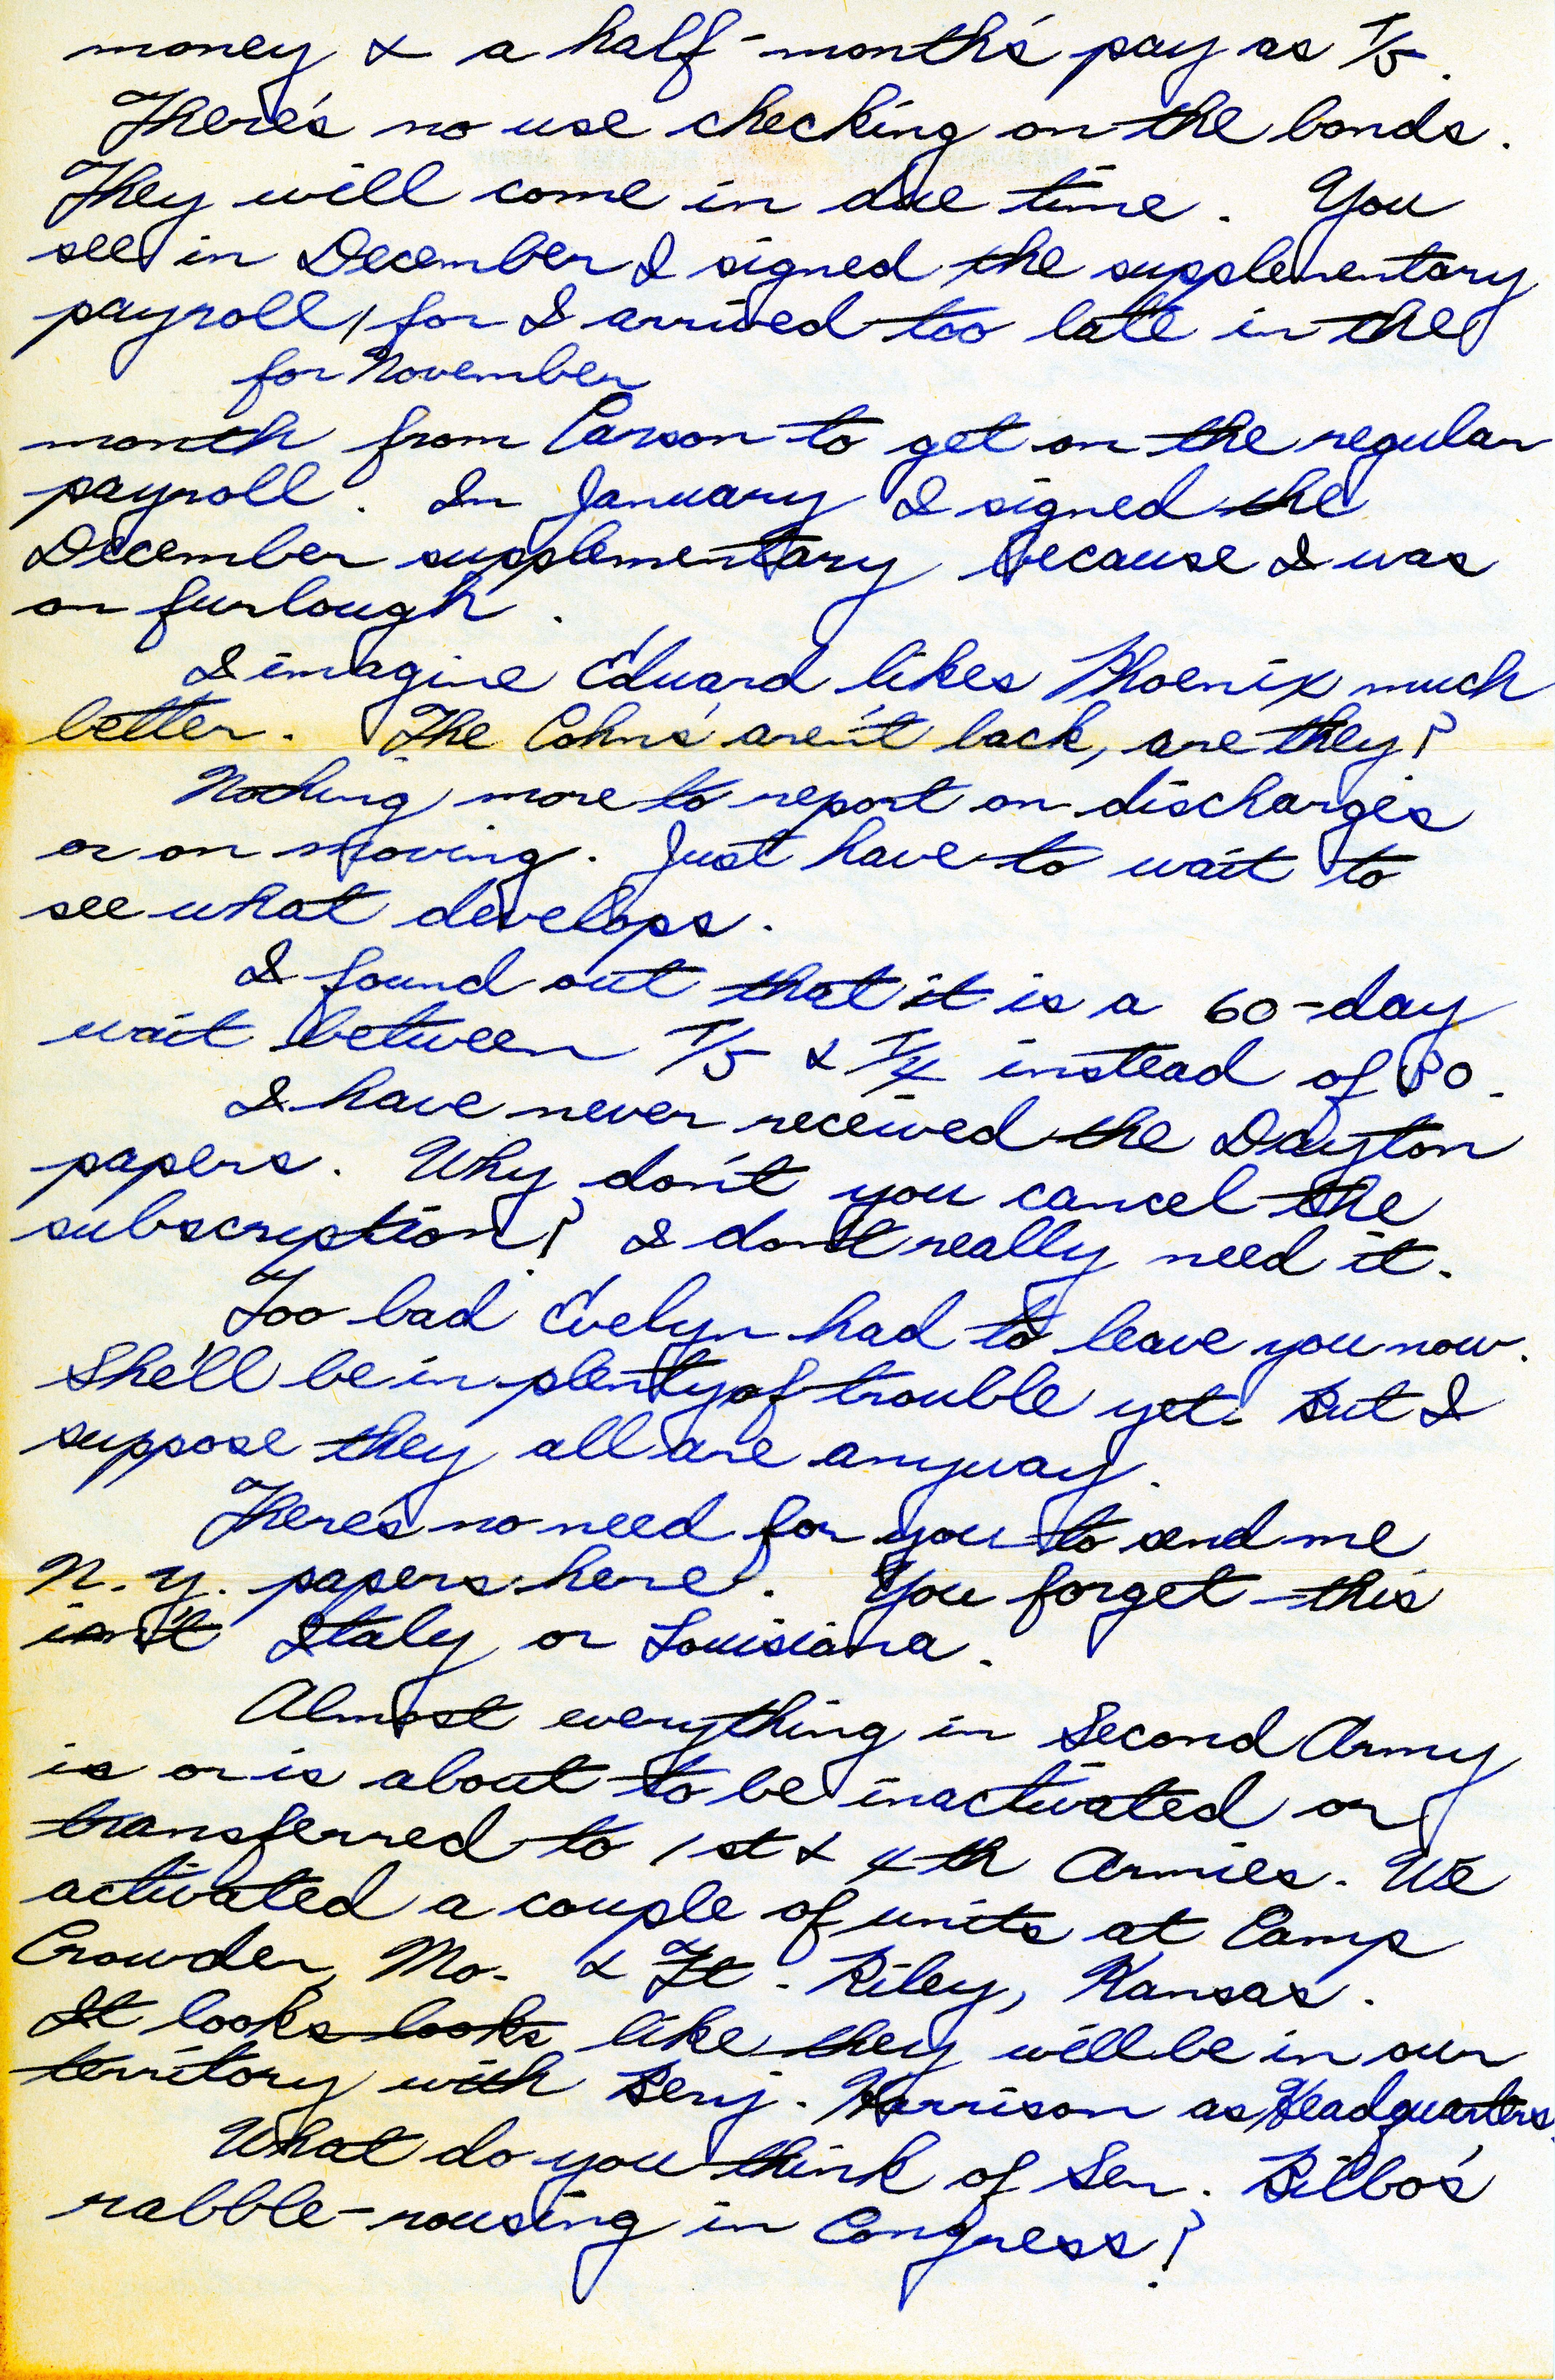 money & a half-month's pay as T/5.
There's no use checking on the bonds.
They will come in due time. You
see in December I signed the supplementary
payroll, for I arrived too late in the
for November
month from Carson to get on the regular
payroll. In January I signed the
December supplementary because I was
on furlough.
I imagine Eduard likes Phoenix much
better. The Cohns aren't back, are they?
Nothing more to report on discharges
or on moving. Just have to wait to
see what develops.
I found out that it is a 60-day
wait between T/5 & T/4 instead of 80.
I have never received the Dayton
papers. Why don't you cancel the
subscription? I don't really need it.
Too bad Evelyn had to leave you now.
She'll be in plenty of trouble yet. But I
suppose they all are anyway.
There's no need for you to send me
N.Y. papers here. You forget this
isn't Italy or Louisiana.
Almost everything in Second Army
is or is about to be inactivated or
transferred to 1st & 4th Armies. We
activated a couple of units at Camp
Crowder, Mo. & Ft. Riley, Kansas.
It looks looks like they will be in our
territory with Benj. Harrison as Headquarters.
What do you think of Sen. Bilbo's
rabble-rousing in Congress?